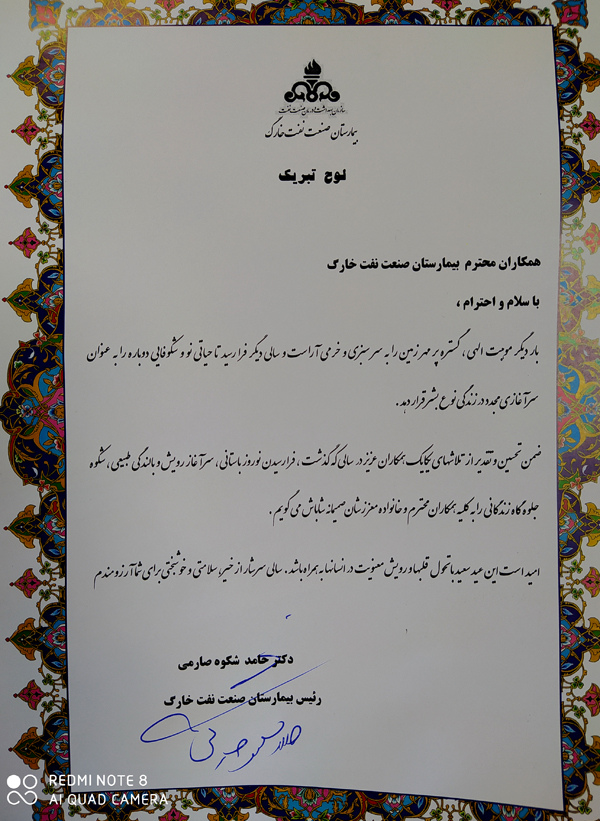 سازمان بهداشت و درمان صنعت نفت
بیمارستان صنعت نفت خارگ
لوح تبریک
همکاران محترم بیمارستان صنعت نفت خارگ
با سلام و احترام ،
بار دیگر موهبت الهی ، گستره پر مهر زمین را به سرسبزی و خرمی آراست و سالی دیگر فرا رسید تا حیاتی نو و شکوفایی دوباره را به عنوان
سرآغازی مجدد در زندگی نوع بشر قرار دهد .
ضمن تحسین و تقدیر از تلاشهای یکایک همکاران عزیز در سالی که گذشت ، فرارسیدن نوروز باستانی ، سرآغاز رویش و بالندگی طبیعی ، شکوه
جلوه گاه زندگانی را به کلیه همکاران محترم و خانواده معززشان صمیمانه شاباش می گویم .
امید است این عید سعید با تحول قلبها و رویش معنویت در انسانها به همراه باشد . سالی سرشار از خیر، سلامتی و خوشبختی برای شما آرزومندم
دکتر حامد شکوه صارمی
رئیس بیمارستان صنعت نفت خارگ
REDMI NOTE 8
AI QUAD CAMERA